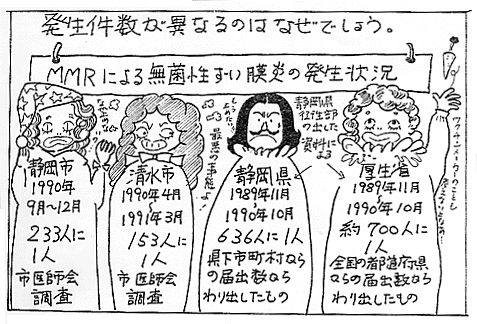 発生件数が異なるのはなぜでしょう。
MMRによる無菌性ずい膜炎の発生状況
静岡市
1990年
9月〜12月
233人に
1人
市医師会
調査
清水市
1990年4月
〜
1991年3月
153人に
1人
市医師会
調査
最悪の事態だ!
静岡県
1989年11月
〜
1990年10月
636人に1人
県下市町村なら
の届出数なら
わり出したもの
静岡県
衛生部
の出した
資料に
よる
厚生省
1989年11月
〜
1990年10月
約700人に
1人
全国の都道府県
ならの届出数なら
わり出したもの